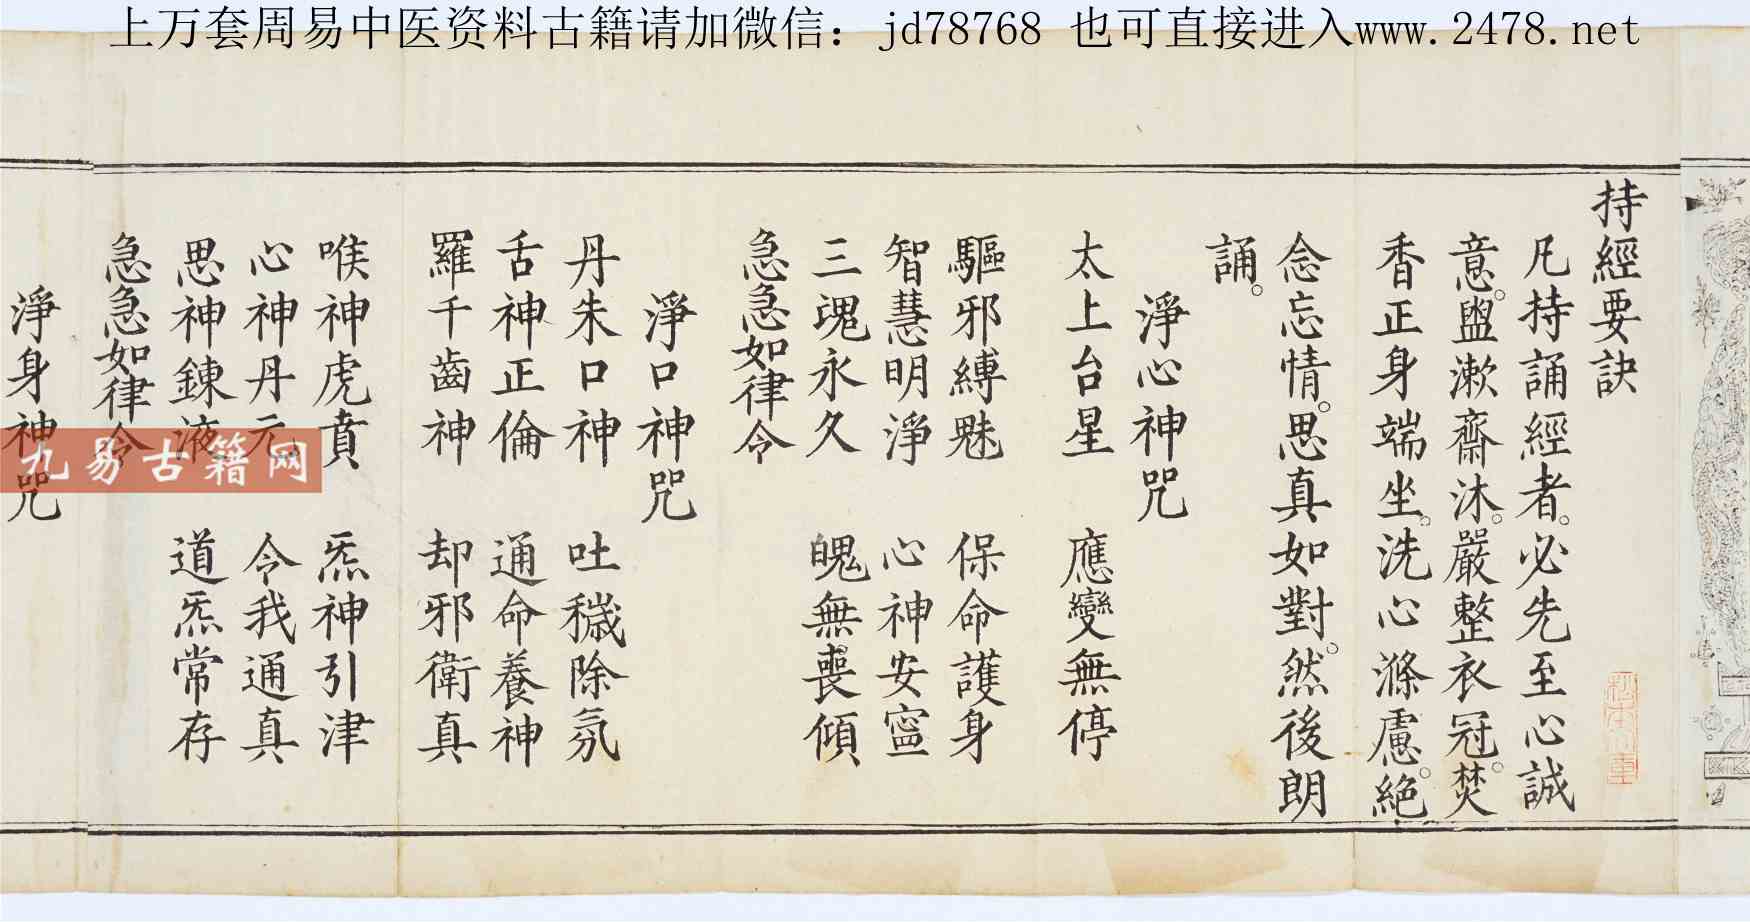 上万套周易中医资料古籍请加微信：jd78768 也可直接进入www.2478.net
持經要訣
凡持誦經者。必先至心誠
意。盥漱齋沐。嚴整衣冠。焚
香正身端坐。洗心滌慮。絕
念忘情。思真如對。然後朗
誦。
淨心神咒
太上台星 應變無停
驅邪縛魅 保命護身
智慧明淨 心神安寧
三魂永久 魄無喪傾
急急如律令
淨口神咒
丹朱口神 吐穢除氛
舌神正倫 通命養神
羅千齒神 却邪衛真
喉神虎賁 炁神引津
心神丹元 令我通真
思神鍊液 道炁常存
急急如律令
淨身神咒
九易古籍网